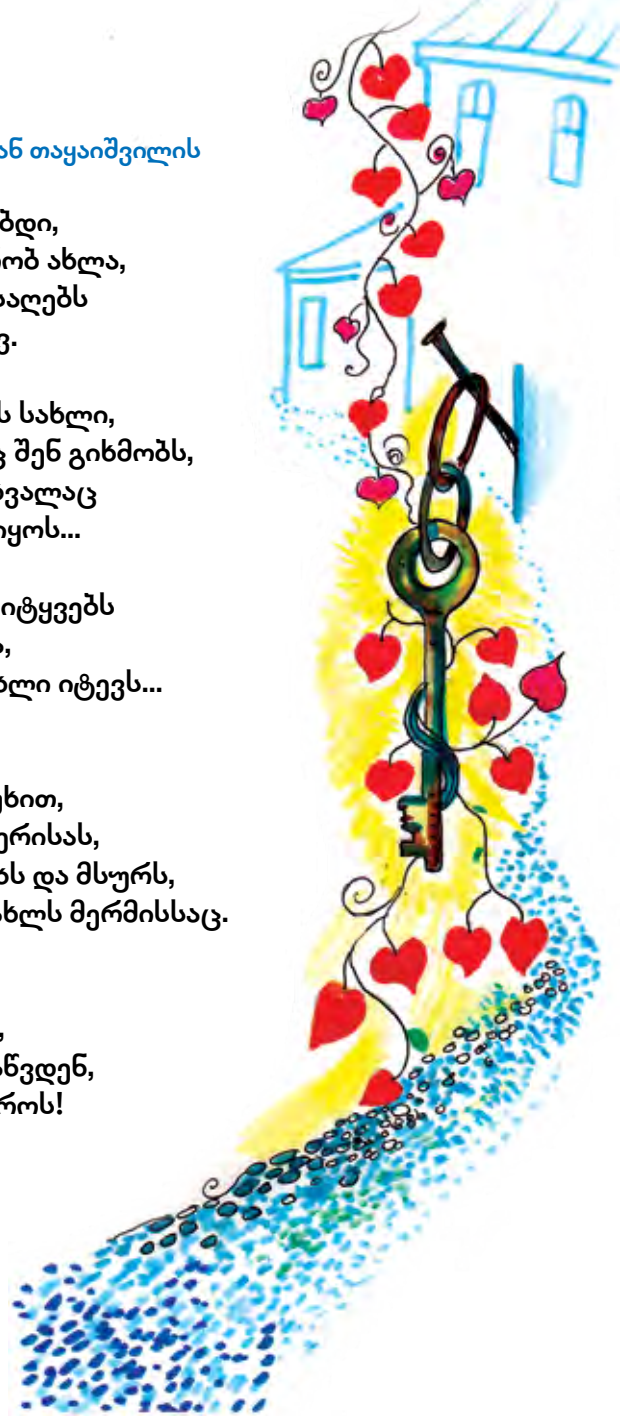 ან თაყაიშვილის
ბდი,
ობ ახლა,
საღებს
ვ.
ს სახლი,
ც შენ გიხმობს,
ვალაც
იყოს...
იტყვებს
ბლი იტევს...
ეხით,
ერისას,
ბს და მსურს,
ახლს მერმისსაც.
აწვდენ,
როს!